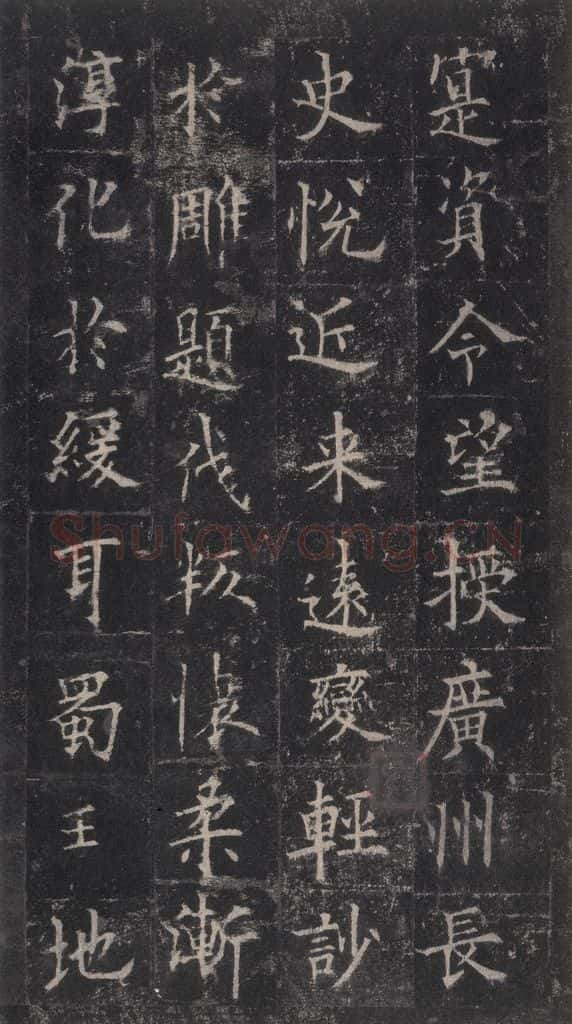 寔資令望授廣州長
史悅近来遠變輕訬
於雕題伐叛懷柔漸
淳化於緩耳蜀王地
Shufawang.CN